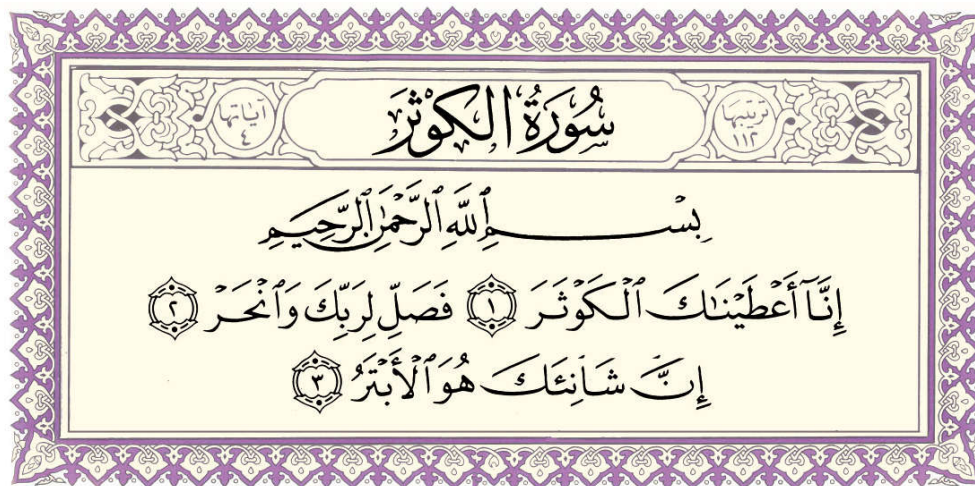 ترتيبها ١١٣ سُورَةُ الْكَوْثَرَ آياتها ٤
بِسْمِ ٱللَّهِ ٱلرَّحْمَٰنِ ٱلرَّحِيمِ
إِنَّآ أَعْطَيْنَٰكَ ٱلْكَوْثَرَ ١ فَصَلِّ لِرَبِّكَ وَٱنْحَرْ ٢
إِنَّ شَانِئَكَ هُوَ ٱلْأَبْتَرُ ٣